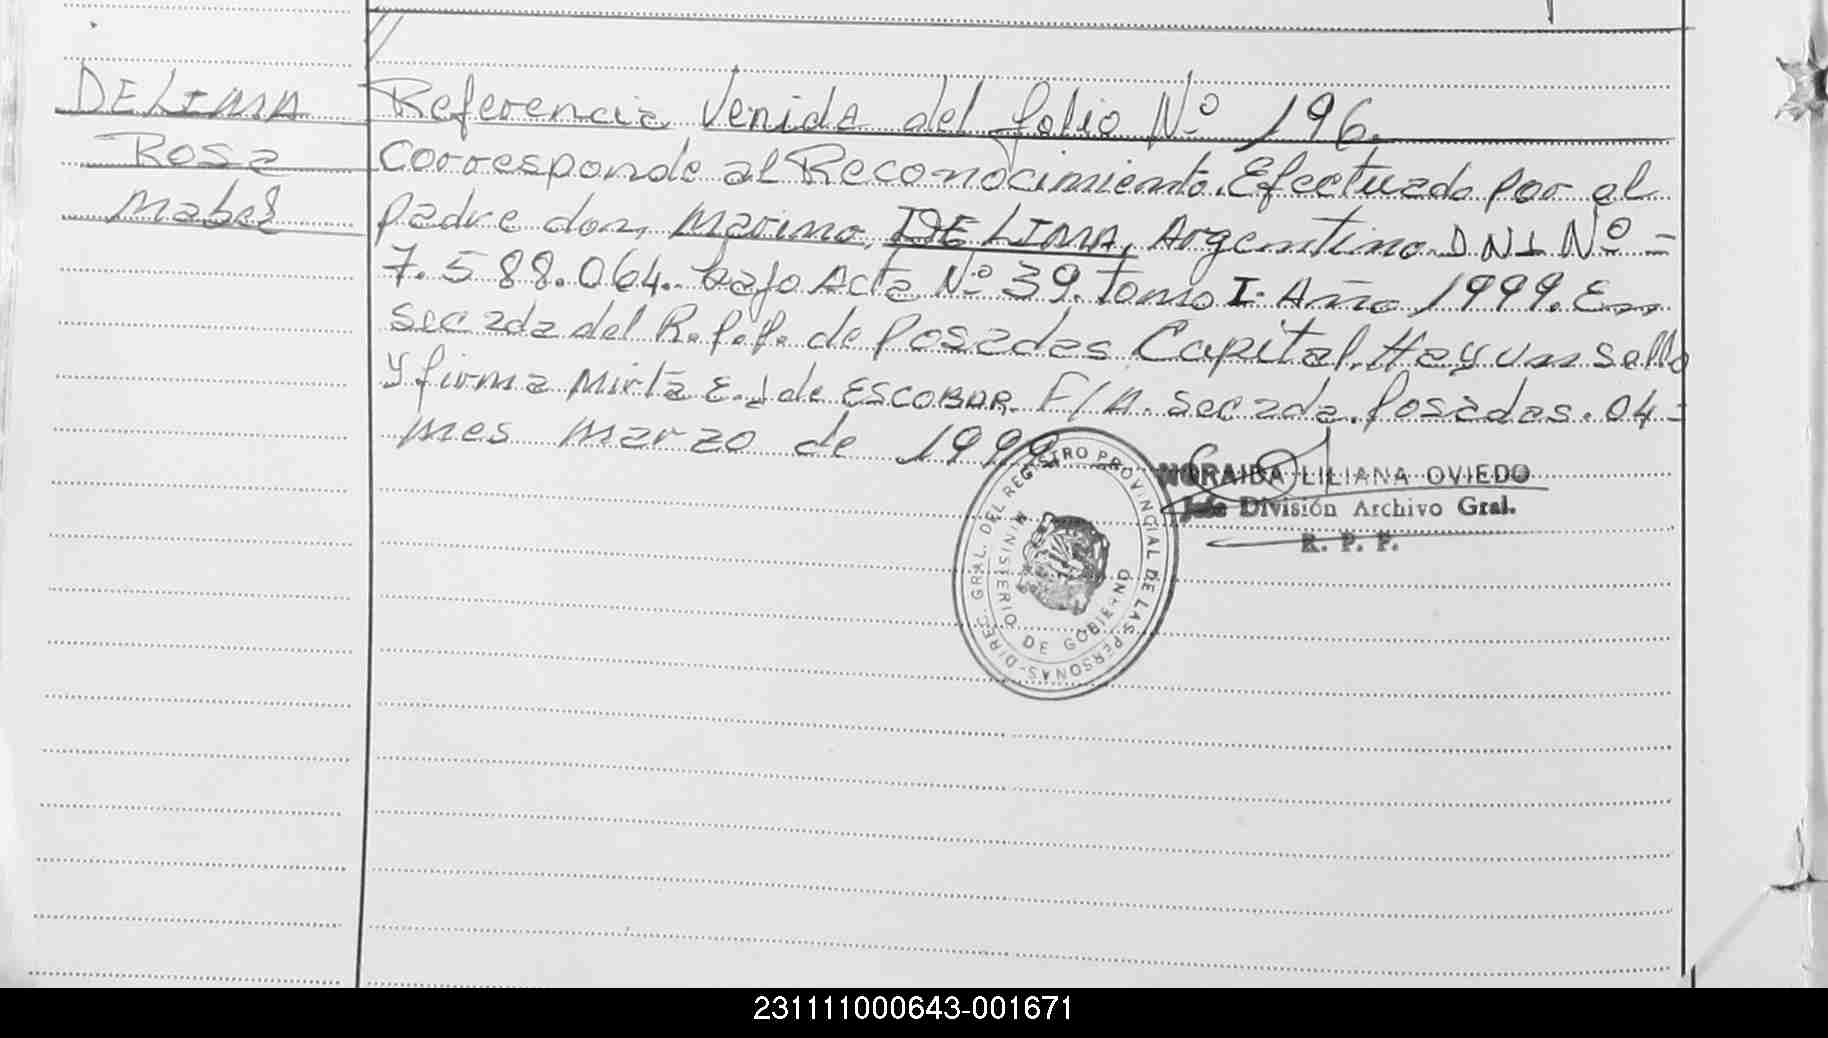 DE LIMA
Rosa
Mabel
Referencia Venida del folio Nº 196.
Corresponde al Reconocimiento. Efectuado por el
padre don, Marino, DE LIMA, Argentino DNI Nº =
7.588.064.. bajo Acta Nº 39. Tomo I. Año 1999. En
Sec 2da del R.P.P. de Posadas Capital. Hay un sello
y firma Mirta E. J de ESCOBAR. F/A. Sec 2da. Posadas. 04 =
mes marzo de 1999
NORAIDA LILIANA OVIEDO
Jefe División Archivo Gral.
R. P. P.
DIREC. GRAL. DEL REGISTRO PROVINCIAL DE LAS PERSONAS
MINISTERIO DE GOBIERNO
231111000643-001671